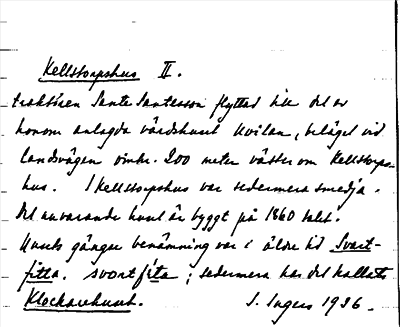 Kellstorpshus II.
traktören Sante Santesson flyttad till det av
honom anlagda värdshuset Kvilan, beläget vid
landsvägen omkr. 200 meter väster om Kellstorps-
hus. I Kellstorpshus var sedermera smedja.
Det nuvarande huset är byggt på 1860 talet.
Husets gängse benämning var i äldre tid Svart-
fitta. svortfita; sedermera har det kallats
Klockarehuset. I. Ingers 1936.